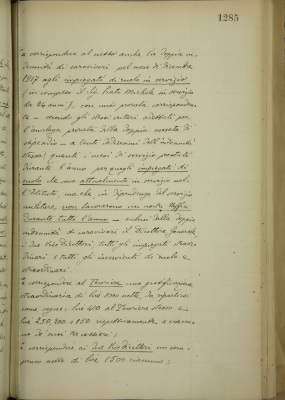 1285
a corrispondere al netto anche la doppia in-
dennità di caroviveri pel mese di Dicembre
1917 agli impiegati di ruolo in servizio
(in congedo il Sig. Prato Michele in servizio
da 24 anni), con una prorata corrisponden-
te - secondo gli stessi criteri adottati per
l'analoga prorata della doppia mesata di
stipendio - a tanti dodicesimi dell'indennità
stessa, quanti i mesi di servizio prestati
durante l'anno per quegli impiegati di
ruolo che sono attualmente in servizio nel-
l'Istituto, ma che in dipendenza del servizio
militare, non lavorarono nei nostri uffici
durante tutto l'anno - esclusi dalla doppia
indennità di caroviveri il Direttore Generale,
i due Vice Direttori, tutti gli impiegati straor-
dinari e tutti gli inservienti di ruolo e
straordinari.
a corrispondere al Tesoriere una gratificazione
straordinaria di lire 1000 nette, da ripartirsi
come segue: lire 400 al Tesoriere stesso e
lire 250, 200 e 150 rispettivamente a ciascu-
no dei suoi tre cassieri;
a corrispondere ai due Vice Direttori un com-
penso netto di lire 1500 ciascuno;